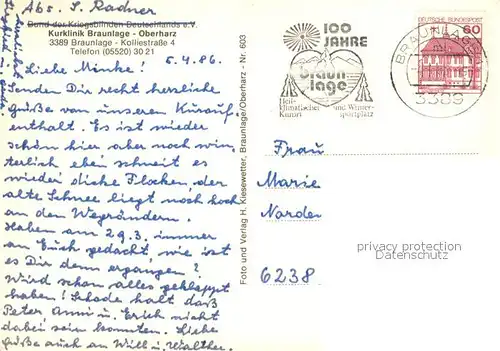 Abs. S. Radner
Bund der Kriegsblinden Deutschlands e.V.
Kurklinik Braunlage - Oberharz
3389 Braunlage - Kolliestraße 4
Telefon (05520) 30 21
5.4.86.
Liebe Minke!
Senden Dir recht herzliche
Grüße von unseren Kurauf-
enthalt. Es ist wieder
schön hier aber noch win-
terlich eben schneit es
wieder dicke Flocken, der
alte Schnee liegt noch hoch
an den Wegrändern.
Haben am 29.3. immer
an Euch gedacht, wie ist
es Dir denn ergangen?
Wird schon alles geklappt
haben! Schade halt daß
Peter, Anni u. Erich nicht
dabei sein konnten. Liebe
Grüße auch an Willi u. Walther.
Foto und Verlag H. Kiesewetter, Braunlage/Oberharz - Nr. 603
100
JAHRE
Braun
lage
Heil-
klimatischer
Kurort
und Winter-
sportplatz
BRAUNLAGE
3389
DEUTSCHE BUNDESPOST
60
Frau
Marie
Norden
6238
privacy protection
Datenschutz